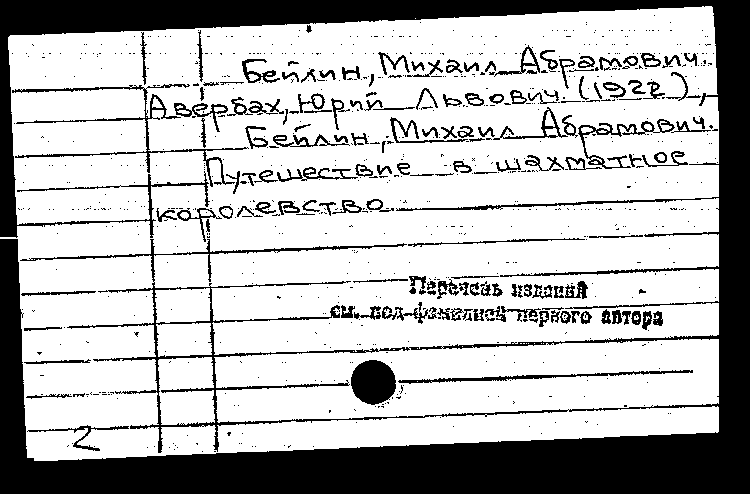 Бейлин, Михаил Абрамович.
Авербах, Юрий Львович (1922),
Бейлин, Михаил Абрамович.
Путешествие в шахматное
королевство
Перечень изданий
см. под фамилией первого автора
2